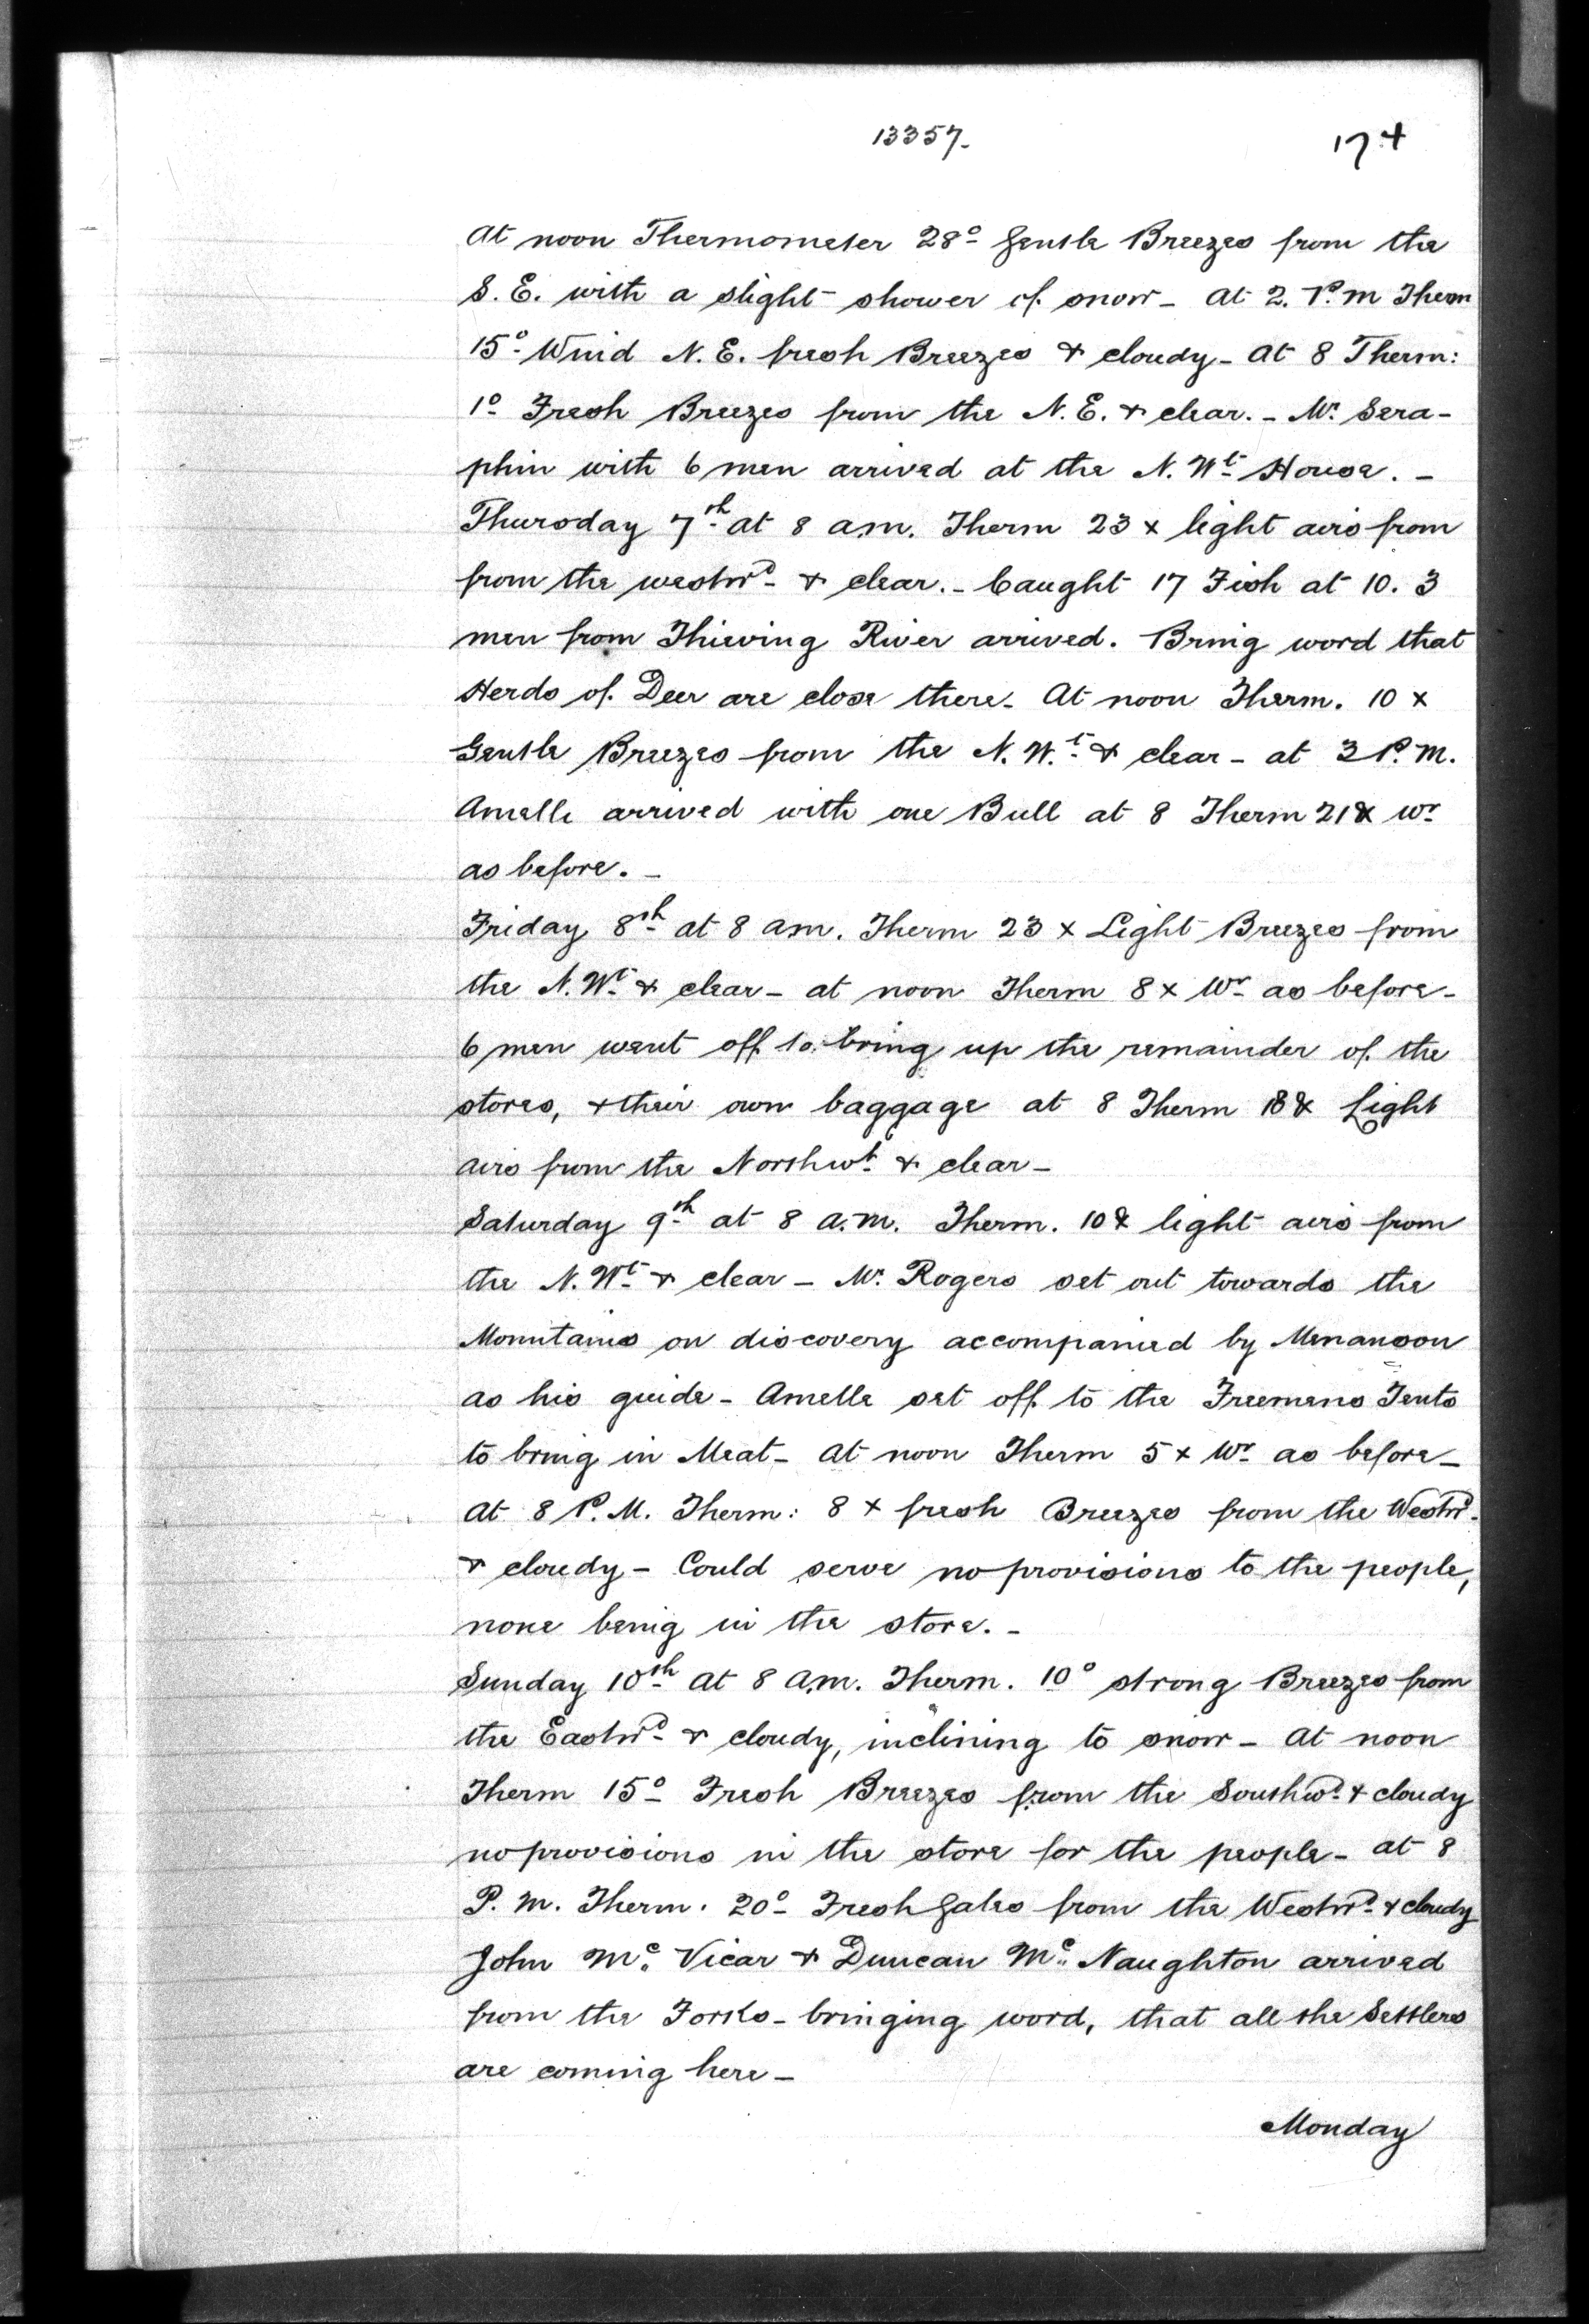 13357.
174
At noon Thermometer 28° Gentle Breezes from the
S. E. with a slight shower of snow - At 2. P.m Therm
15° Wind N. E. fresh Breezes & cloudy - At 8 Therm:
1° Fresh Breezes from the N. E. & clear. - Mr. Sera-
phin with 6 men arrived at the N. Wt. House. -
Thursday 7th at 8 a.m. Therm 23 x light airs from
from the westwd. & clear. - Caught 17 Fish at 10. 3
men from Thieving River arrived. Bring word that
Herds of Deer are close there - At noon Therm. 10 x
Gentle Breezes from the N. W.t & clear - at 3 P. M.
Amelle arrived with one Bull at 8 Therm 21 x Wr
as before. -
Friday 8th at 8 a.m. Therm 23 x Light Breezes from
the N. Wt. & clear - at noon Therm 8 x Wr as before -
6 men went off to bring up the remainder of the
stores, & their own baggage at 8 Therm 18 x Light
airs from the Northwt. & clear -
Saturday 9th at 8 a.m. Therm. 10 x light airs from
the N. Wt. & clear - Mr. Rogers set out towards the
Mountains on discovery accompanied by Menanson
as his guide - Amelle set off to the Freemens Tents
to bring in Meat - At noon Therm 5 x Wr as before -
At 8 P. M. Therm: 8 x fresh Breezes from the Westwd.
& cloudy - Could serve no provisions to the people,
none being in the store. -
Sunday 10th At 8 a.m. Therm. 10° strong Breezes from
the Eastwd. & cloudy, inclining to snow - At noon
Therm 15° Fresh Breezes from the Southwd. & cloudy
no provisions in the store for the people - at 8
P. m. Therm. 20° Fresh Gales from the Westwd. & cloudy
John Mc. Vicar & Duncan Mc. Naughton arrived
from the Forks - bringing word, that all the Settlers
are coming here -
Monday